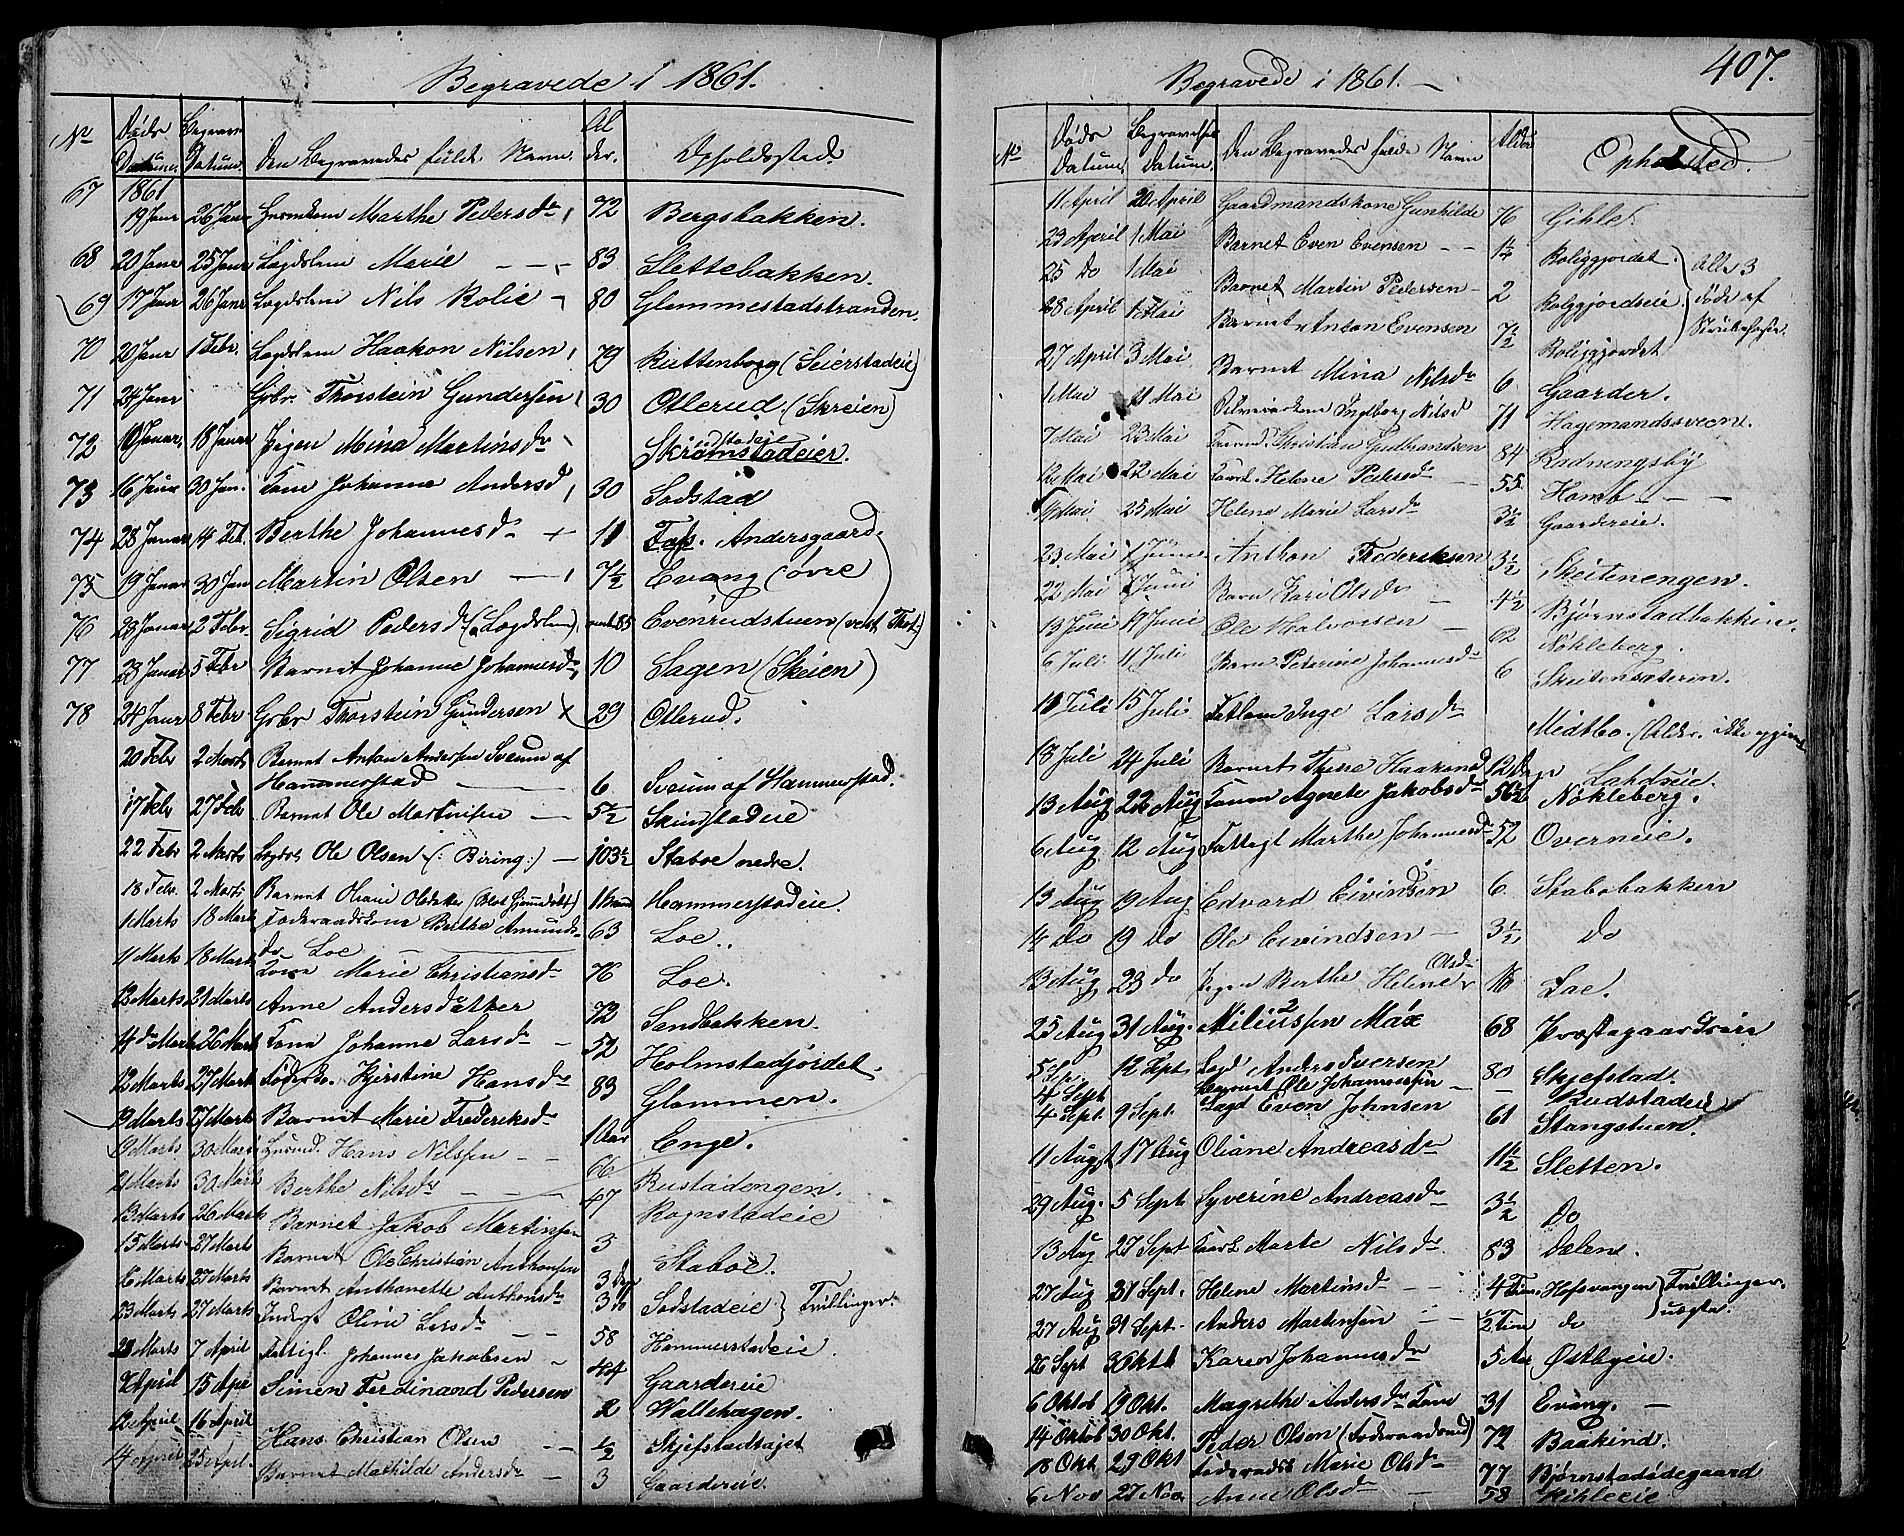 Begravede i 1861.
No Døds Datum. Begrav. Datum. Den Begravedes fulde Navn. Alder. Opholdssted
1861
67 19 Janr 26 Janr Marthe Pedersdr 72 Bergsbakken.
68 20 Janr 25 Janr Lægdslem Marie - - - 83 Slettebakken.
69 17 Janr 26 Janr Lægdslem Nils Rolie - 80 Glommestadstranden.
70 20 Janr 1 Febr. Lægdslem Haakon Nilsen 79 Ruttenborg (Seierstadeie)
71 24 Janr Gbr. Thorstein Gundersen 30 Otlerud. (Skreien)
72 10 Januar 18 Janr Pigen Mina Martinsdr
Skrømstadeier.
73 16 Janr 30 Jan. Kone Johanne Andersd 30 Sodstad
74 28 Januar 14 Feb. Berthe Johannesdr + 11 Fos. Andersgaard.
75 19 Januar 30 Jan Martin Olsen - 7½ Evang (øvre
76 23 Januar 2 Febr. Sigrid Pedersdr (Lægdslem) 85 Evenrudstuen (vest. Thot.)
77 23 Januar 5 Febr Barnet Johanne Johannesdr 10 Sagen (Skeien)
78 24 Janr 8 Febr Gbr Thorstein Gundersen 29 Otlerud.
20 Febr 2 Marts Barnet Anton Andersen Sveum af
Hammerstad 6 Sveum af Hammerstad.
17 Febr 27 Febr Barnet Ole Martinsen - 5½ Skindstadeie
22 Febr 2 Marts Lægdsl. Ole Olsen (: Biring :) - 103½ Staboe nedre.
18 Feb. 2 Marts Barnet Hammerstadeie.
1 Marts 18 Mart Føderaadskone Berthe Amunds-
dr Loe 63 Loe.
11 Marts 18 Marts Kone Marie Christiansdr 76 Loe.
13 Marts 21 Marts Anne Andersdatter 73 Sandbakken.
4de Marts 26 Marts Kone Johanne Larsdr - 52 Holmstadjordet.
12 Marts 27 Marts Føders. Kjerstine Hansdr 83 Glommen.
9 Marts 27 Marts Barnet Marie Frederiksdr 1 Aar Enge.
9 Marts 30 Marts Hans Nilssen - - 66 Rustadengen.
21 Marts 30 Marts Berthe Nilsdr - - 47 Rognstadeie
13 Marts 26 Marts Barnet Jakob Martinsen 3 Staboe.
15 Marts 27 Marts Barnet Ole Christian Anthonsen 3 Dage
16 Marts 27 Marts Barnet Anthonette Anthonsdr 3 do Sodstadeie } Tvillinger.
23 Marts 27 Marts Inderst Oline Larsdr - - 58 Hammerstadeie.
23 Marts 7 April Fattigl. Johannes Jakobsen - 44 Gaardereie
2 April 15 Apr Simen Ferdinand Pedersen 2 Wallehagen.
12 April 16 April Hans Christian Olsen - - ½ Skjefstadtajet
14 April 25 Apr. Barnet Mathilde Andersdr - 3 Gaardereie.
Begravede i 1861. -
407.
No Døds Datum. Begravelses Datum. Den Begravedes fulde Navn Alder Opholdsted.
11 April 20 April Gaardmandskone Gunhilde 76 Gihle.
23 April 1 Mai Barnet Even Evensen - - 1¼ Roliggjordet.
25 do 1 Mai Barnet Martin Pedersen - 2 Roliggjordseie
28 April 1 Mai Barnet Anton Evensen 7½ Roliggjordet
} Alle 3 døde af
27 April 3 Mai Barnet Mina Nilsdr 6 Gaarder.
1 Mai 11 Mai Ingeborg Nilsd 71 Hagemandssveen.
7 Mai 23 Mai Christian Gulbrandsen 84 Radningsby
12 Mai 22 Mai Helene Pedersdr 55 Homb - - -
19 Mai 25 Mai Helene Marie Larsdr 3½ Gaardereie.
23 Mai 1 Juni Anthon Frederiksen 3½ Skeitenengen.
22 Mai 1 Juni Barn Kari Olsdr - 4½ Bjørnstadbakken.
13 Juni 19 Juni Ole Halvorsen - 62 Nøkleberg.
6 Juli 11 Juli Barn Peterine Johannesdr 6 Skeitensæteren.
11 Juli 15 Juli Fatlem Inge Larsdr Midtbo. (Alder ikke opgivet
18 Juli 24 Juli Barnet Haakensd 12 Dage
13 Aug 22 Aug Kone Agnete Jakobsdr 56½ Nøkleberg.
6 Aug 12 Aug Fattigl Marthe Johannesdr 52 Overneie.
13 Aug 19 Aug Edvard Eivindsen 6 Stabobakken
14 do 19 do Ole Eivindsen - 3½ do
13 Aug 23 do Pigen Berthe Helene Olsdr 16 Loe.
25 Aug 31 Aug. Niliussen Max 68
5 Sp. 12 Spt Lægd Anders Iversen 80 Skjefstad.
4 Sept Barnet Ole Johannessen - - Rudstadeie
4 Sept. 9 Sept. Lægd Even Johnsen 61 Stangstuen.
11 August 17 Aug Oliane Andreasdr 11½ Sletten.
29 Aug. 5 Sept Syverine Andreasdr 3½ Do
13 Aug 27 Sept Marte Nilsdr 83 Dalene.
27 Aug 31 Sept. Helene Martinsdr - - 4 Tim. Hofsvangen } Tvillinger uægte.
27 Aug 31 Sept. Anders Martinsen - - ½ Time do
26 Sept 3 Oktb Karen Johannesdr 5 Aar Østbyeie.
6 Oktob 19 Okt. Magrethe Andersdr Kone 31 Evang. -
14 Oktob 30 Okt. Peder Olsen (Føderaadsmd) 72 Baakind.
18 Okt 29 Okt Føderaads Marie Olsdr 77 Bjørnstadødegaard
6 Nov 27 Nov. Anne Olsdr - - 58 Kihleeie